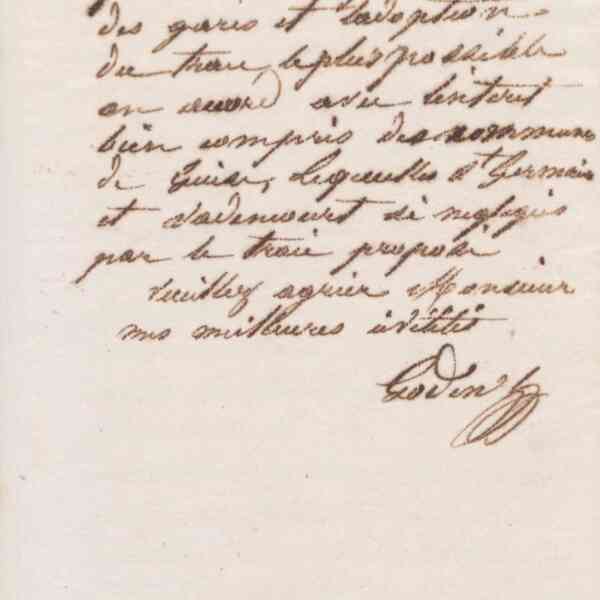 des gares et l'adoption
du tracé le plus possible
en accord avec l'intérêt
bien compris des communes
de Guise, Lesquielles St Germain
et Vadencourt si négligés
par le tracé proposé
Veuillez agréer Monsieur
mes meilleures civilités
Godin